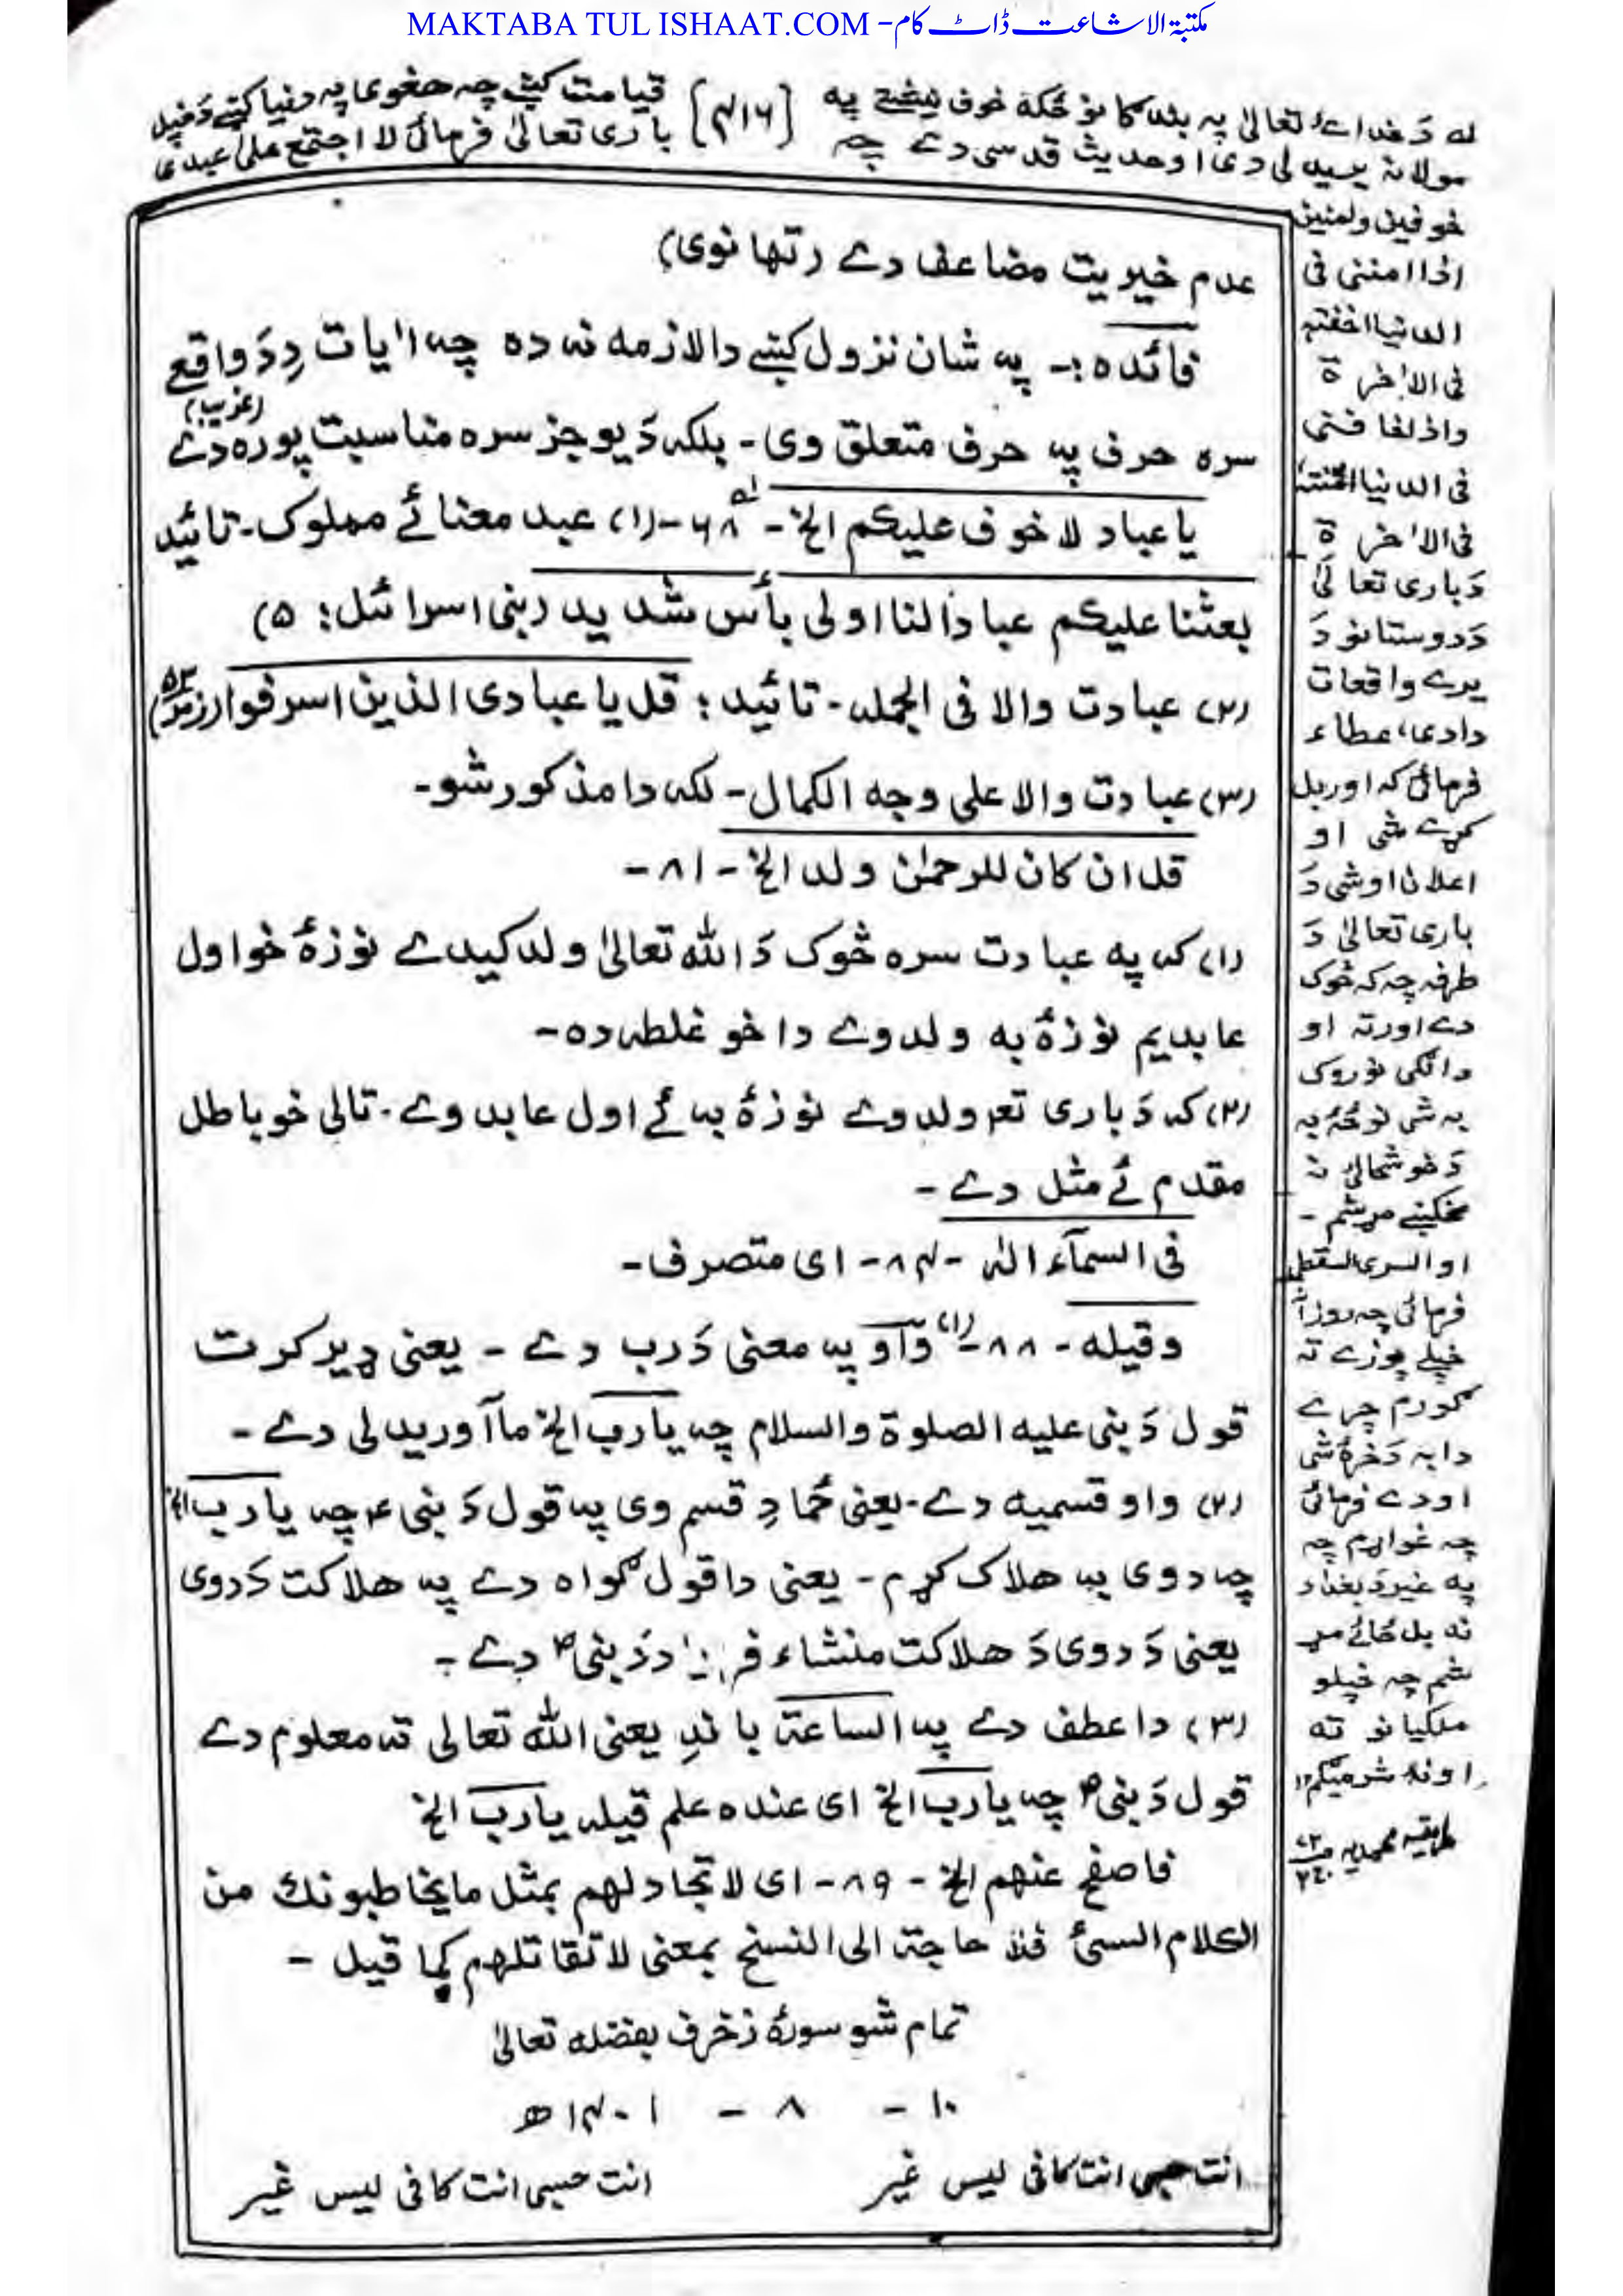 MAKTABA TUL ISHAAT.COM - مکتبۃ الاشاعت ڈاٹ کام
له دَ خدائے تعالیٰ په بندگانو ځکه خوف نیځتے په [۴۱۶] قیامت کښے چه هغوی په دنیا کښے دَ خپل
مولا نه یریدلی دی او حدیث قدسی دے چه باری تعالیٰ فرمائی لا اجتمع علی عبدی
خوفین ولمنین
اذا امننی فی
الدنیا اخفته
فی الاٰخرة
واذا خافنی
فی الدنیا امنته
فی الاٰخرة
دَ باری تعالیٰ
دَ دوستانو دَ
یرے واقعات
دا دی، عطاء
فرمائی که اور بل
کړے شی او
اعلان اوشی دَ
باری تعالیٰ دَ
طرفه چه که څوک
دے اور ته او
دانګی نو روک
به شی نو ځه به
دَ خوشحالئ نه
مخکښے مړ شم -
او السری السقطی
فرمائی چه روزآ
خپلے پوزے ته
ګورم چرے
دا به دَ خرهٔ شی
او دے فرمائی
چه غواړم چه
په غیر دَ بغداد
نه بل ځائے مړ
شم چه خپلو
ملګیانو ته
اونه شرمیګم ۱۲
طریقه محمدیه
عدم خیریت مضاعف دے (تھانوی)
فائده :- په شان نزول کښے دا لازمه نه ده چه اٰیات دِ دَ واقعے
سره حرف په حرف متعلق وی - بلکه دَ یو جز سره مناسبت پوره دے (غریب)
یا عباد لا خوف علیکم الخ - ۶۸ - (۱) عبد معنائے مملوک - تائید
بعثنا علیکم عباداً لنا اولی بأس شدید (بنی اسرائل : ۵)
(۲) عبادت والا فی الجمله - تائید : قل یا عبادی الذین اسرفوا (زمر ۵۳)
(۳) عبادت والا علی وجه الکمال - لکه دا مذکور شو -
قل ان کان للرحمٰن ولد الخ - ۸۱ -
(۱) که په عبادت سره څوک دَ الله تعالیٰ ولد کیدے نو زهٔ خو اول
عابد یم نو زهٔ به ولد وے دا خو غلطه ده -
(۲) که دَ باری تعه ولد وے نو زهٔ به ئے اول عابد وے - تالی خو باطل
مقدم ئے مثل دے -
فی السمآء الٰه - ۸۴ - ای متصرف -
وقیله - ۸۸ - (۱) واو په معنی دَ رب دے - یعنی ډیر کرت
قول دَ نبی علیه الصلوة والسلام چه یارب الخ ما آوریدلی دے -
(۲) واو قسمیه دے - یعنی ځما دِ قسم وی په قول دَ نبی ؐ چه یارب الخ
چه دوی به هلاک کړم - یعنی دا قول ګواه دے په هلاکت دَ دوی
یعنی دَ دوی دَ هلاکت منشاء دَ نبی ؐ دے -
(۳) دا عطف دے په الساعة باندِ یعنی الله تعالی ته معلوم دے
قول دَ نبی ؐ چه یارب الخ ای عنده علم قیله یارب الخ
فاصفح عنهم الخ - ۸۹ - ای لا تجادلهم بمثل ما یخاطبونك من
الکلام السئ فلا حاجة الی النسخ بمعنی لا تقاتلهم کما قیل -
تمام شو سورة زخرف بفضله تعالیٰ
۱۰ - ۸ - ۱۴۰۱ھ
انت حسبی انت کافی لیس غیر انت حسبی انت کافی لیس غیر